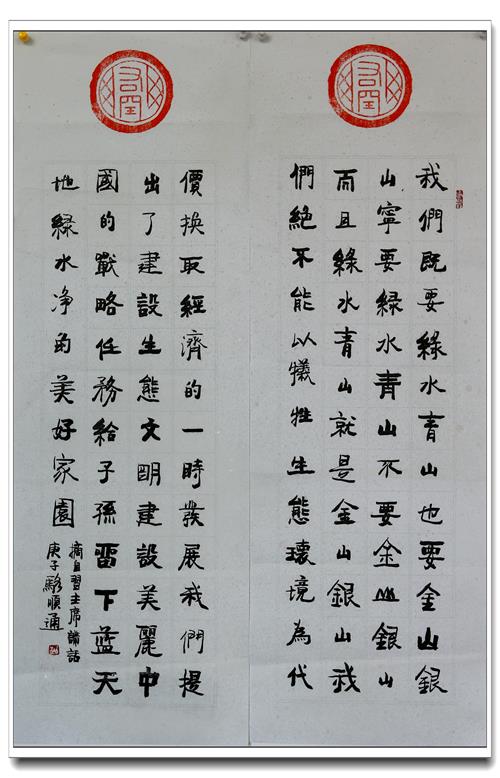 我們既要綠水青山也要金山銀
山寧要綠水青山不要金山銀山
而且綠水青山就是金山銀山我
們絕不能以犧牲生態環境為代
價換取經濟的一時發展我們提
出了建設生態文明建設美麗中
國的戰略任務給子孫留下藍天
地綠水净的美好家園
摘自習主席講話
庚子駱順通